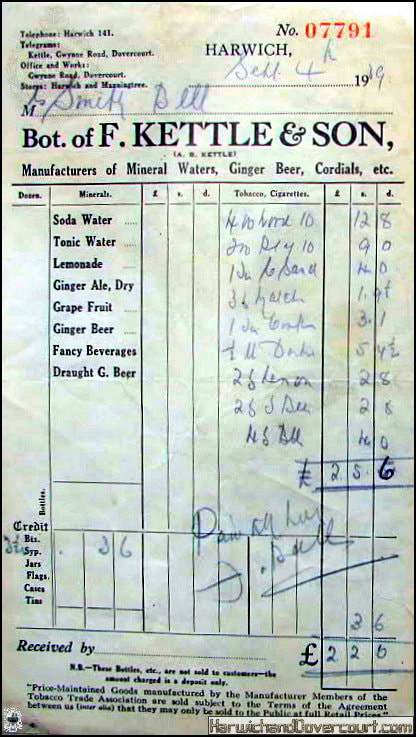 Telephone: Harwich 141.
No. 07791
Telegrams:
Kettle, Gwynne Road, Dovercourt.
HARWICH,
Office and Works:
Gwynne Road, Dovercourt.
Sept. 4th 1939
Stores: Harwich and Manningtree.
M Smith Bell
Bot. of F. KETTLE & SON,
(A. B. KETTLE)
Manufacturers of Mineral Waters, Ginger Beer, Cordials, etc.
Dozen. Minerals. £ s. d. Tobacco, Cigarettes. £ s. d.
Soda Water ..... 10 12 8
Tonic Water ..... 10 9 0
Lemonade ..... 4 0
Ginger Ale, Dry 1. 9½
Grape Fruit ..... 3. 1
Ginger Beer ..... 5 4½
Fancy Beverages
Draught G. Beer 2 Lemon 2 8
2 8
4 0
£ 2. 5. 6
Bottles.
Credit
Bts.
Syp. . 3 6
Jars
Flags.
Cases
Tins
3 6
Received by £ 2 2 0
N.B.—These Bottles, etc., are not sold to customers—the
amount charged is a deposit only.
"Price-Maintained Goods manufactured by the Manufacturer Members of the
Tobacco Trade Association are sold subject to the Terms of the Agreement
between us (inter alia) that they may only be sold to the Public at full Retail Prices"
HarwichandDovercourt.com